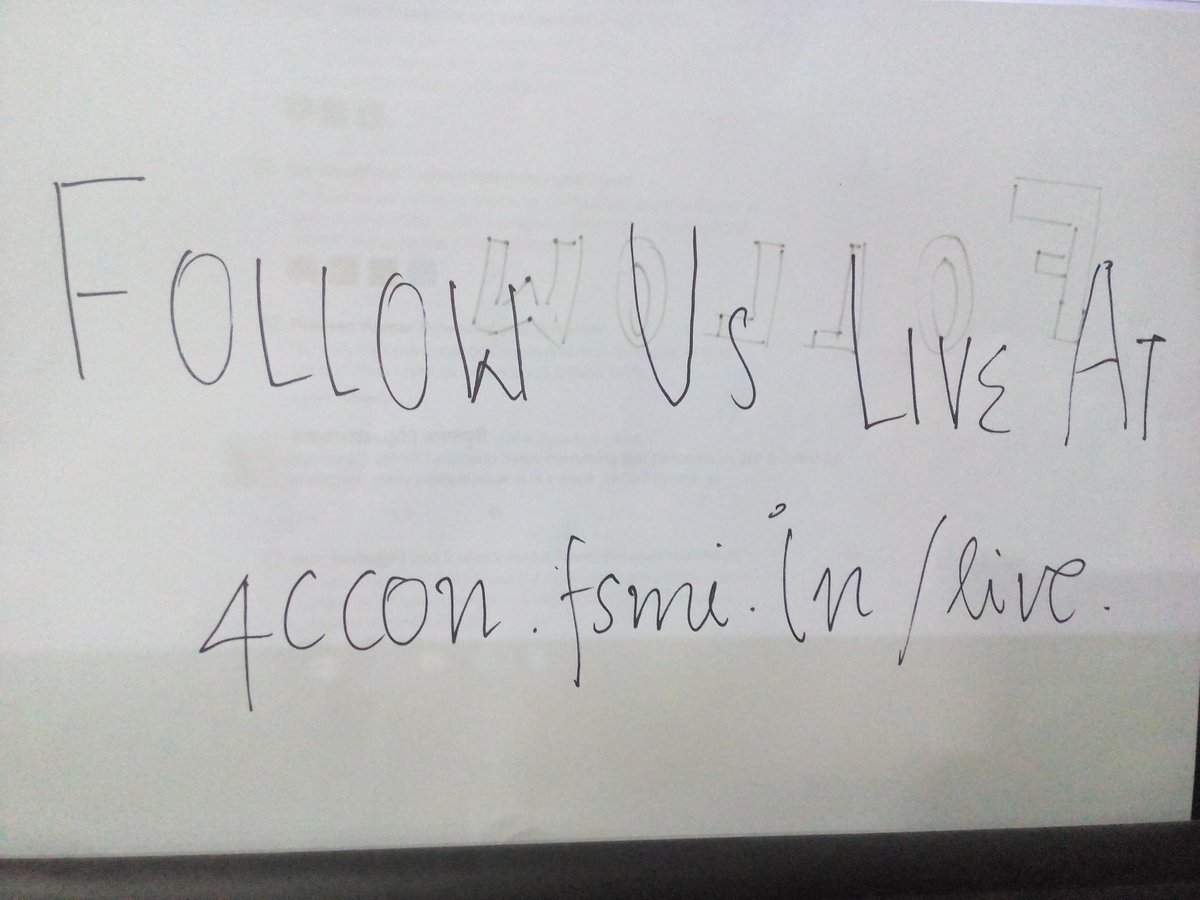 FOLLOW US LIVE AT
4ccon.fsmi.in/live.